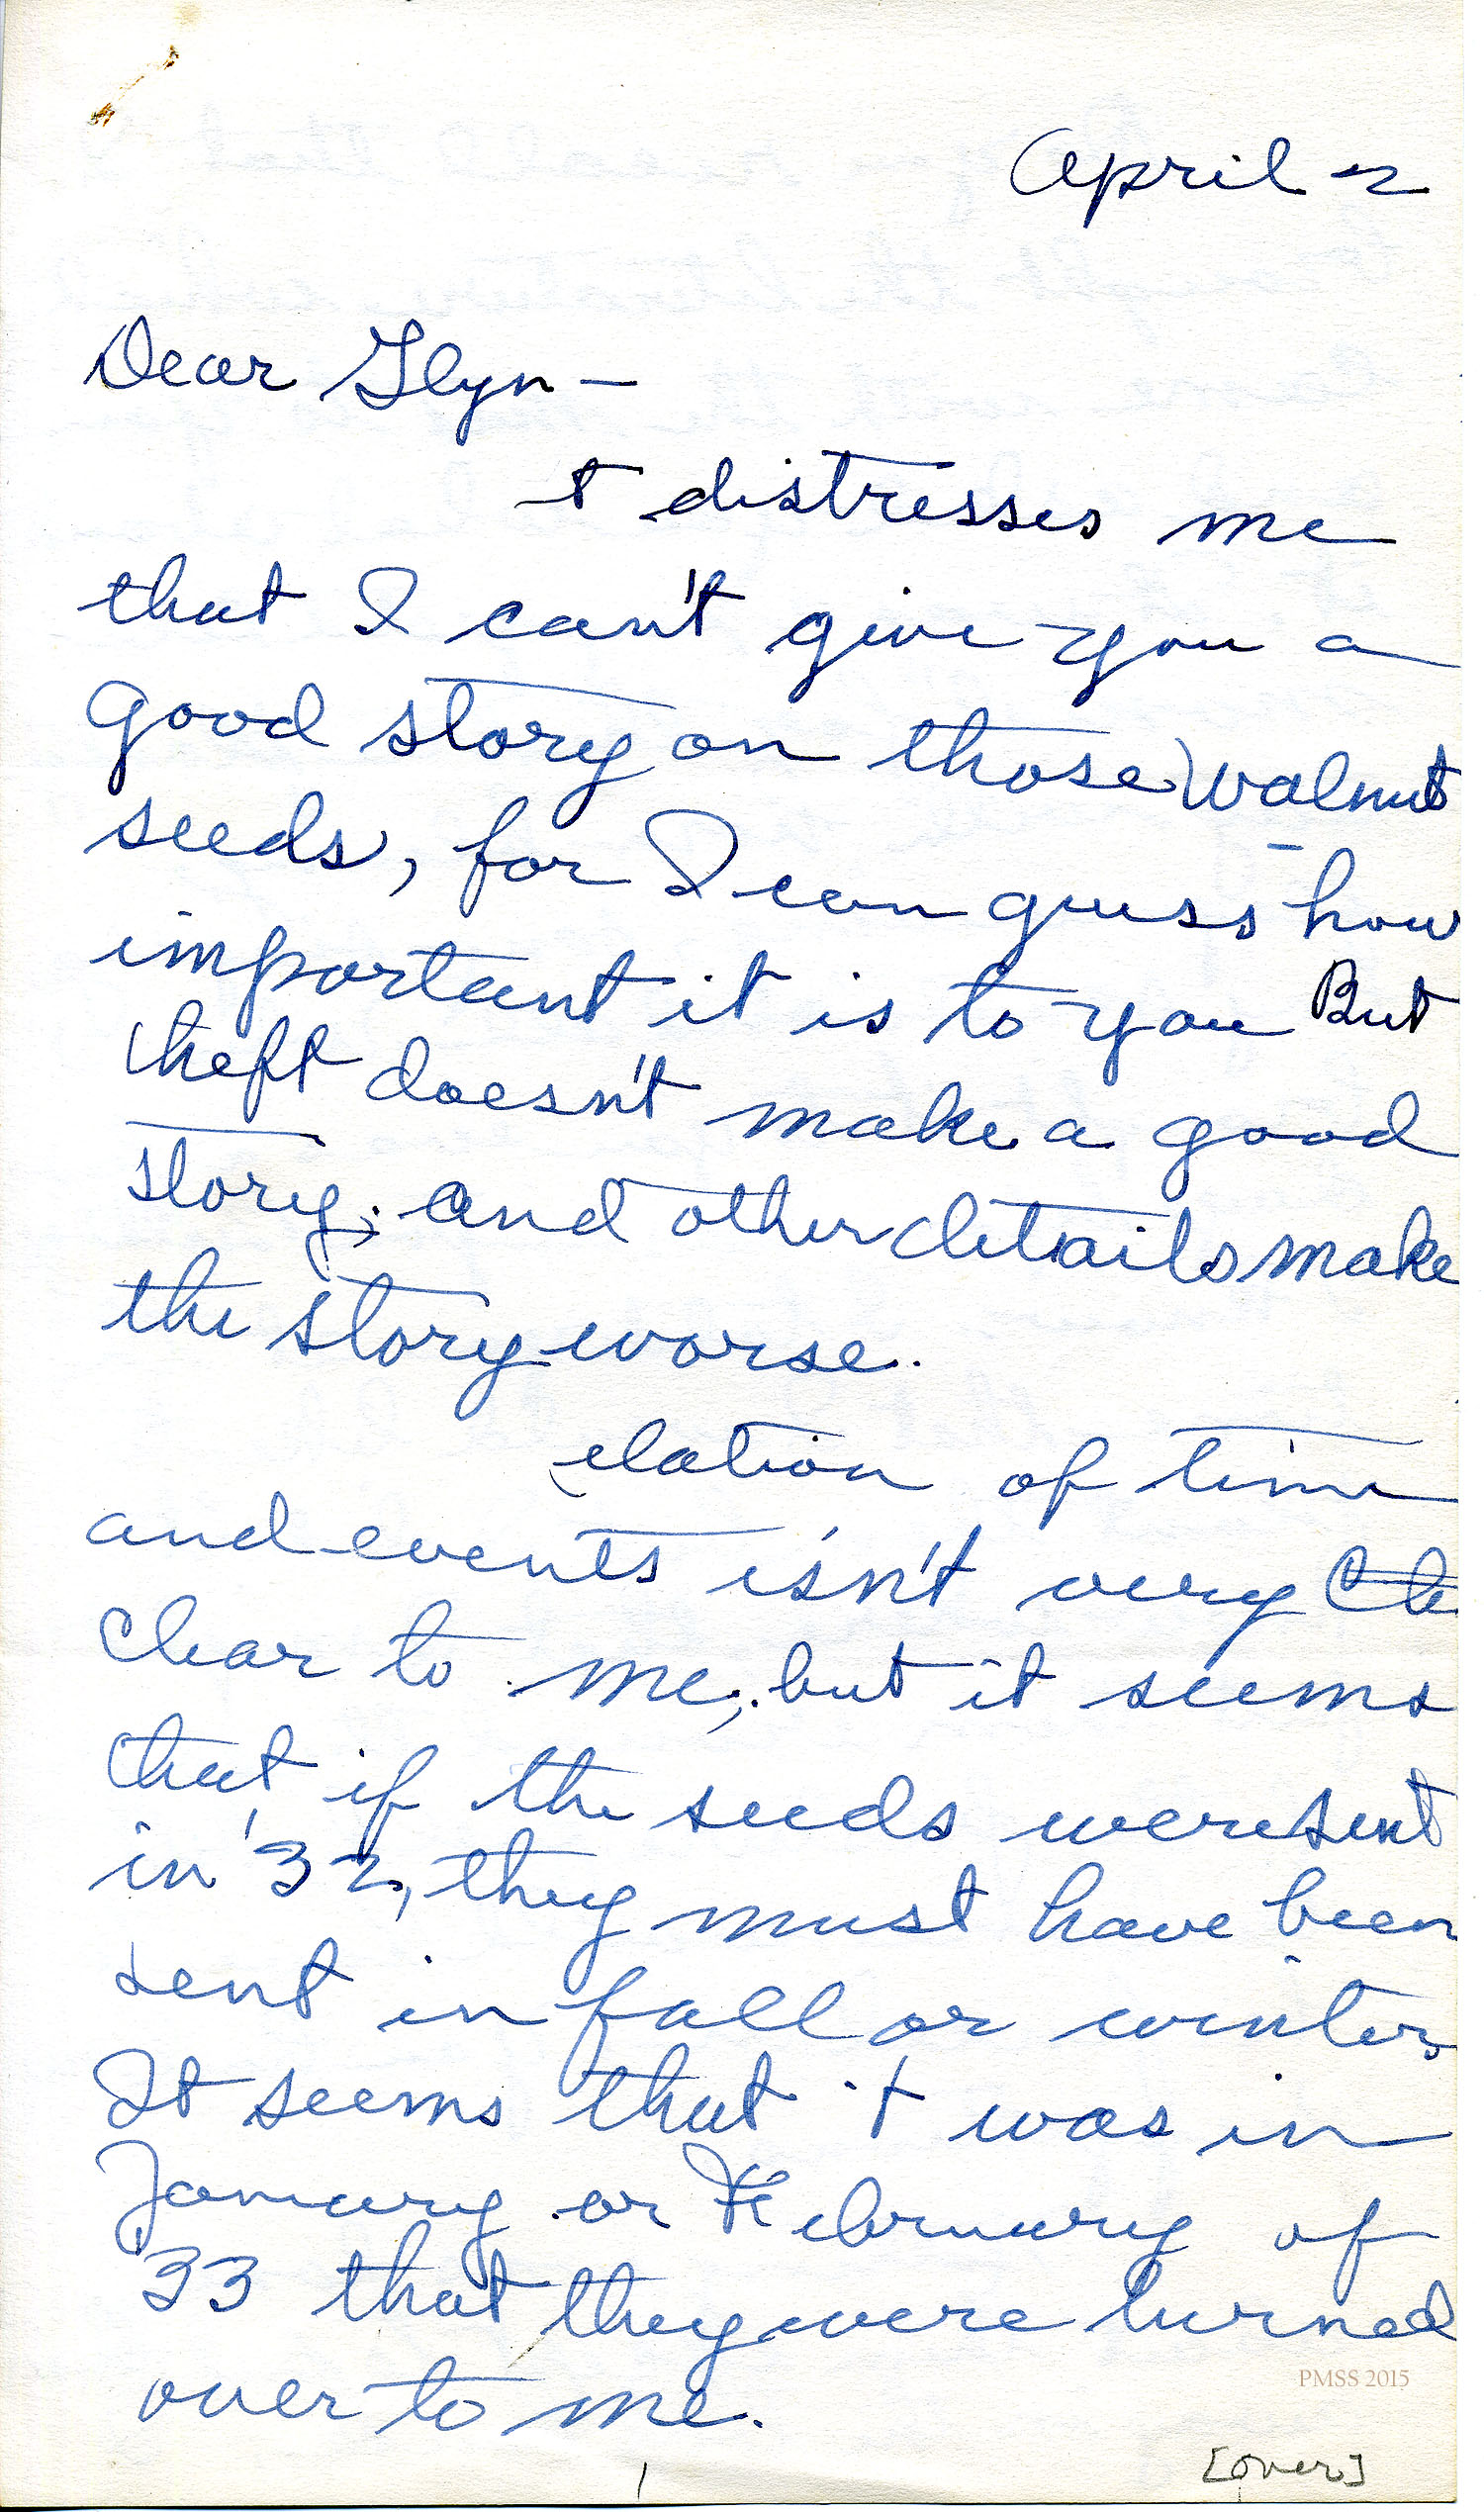 April 2
Dear Glyn —
t distresses me
that I can't give you a
good story on those Walnut
seeds, for I can guess how
important it is to you But
theft doesn't make a good
story; and other details make
the story worse.
elation of time
and events isn't very Cle
Clear to me, but it seems
that if the seeds were sent
in '32, they must have been
sent in fall or winter.
It seems that it was in
January or February of
'33 that they were turned
over to me.
PMSS 2015
1
[over]